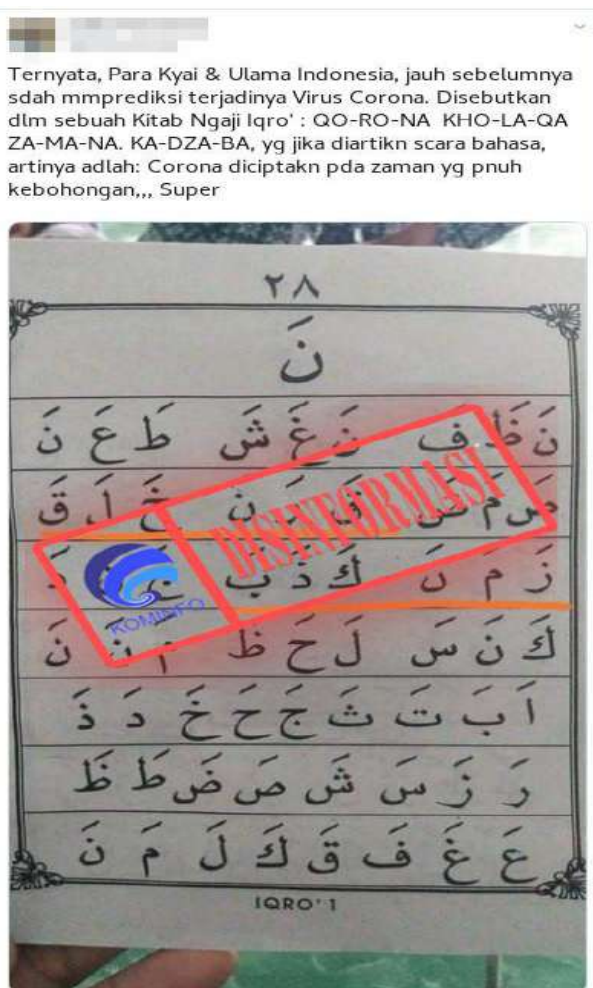 Ternyata, Para Kyai & Ulama Indonesia, jauh sebelumnya
sdah mmprediksi terjadinya Virus Corona. Disebutkan
dlm sebuah Kitab Ngaji Iqro' : QO-RO-NA KHO-LA-QA
ZA-MA-NA. KA-DZA-BA, yg jika diartikn scara bahasa,
artinya adlah: Corona diciptakn pda zaman yg pnuh
kebohongan,,, Super
٢٨
نَ
نَ ظَ فَ نَ غَ شَ طَ عَ نَ
صَ مَ قَ رَ نَ خَ لَ قَ
زَ مَ نَ كَ ذَ بَ
كَ نَ سَ لَ حَ ظَ نَ نَ
اَ بَ تَ ثَ جَ حَ خَ دَ ذَ
رَ زَ سَ شَ صَ ضَ طَ ظَ
عَ غَ فَ قَ كَ لَ مَ نَ
IQRO'1
DISINFORMASI
KOMINFO